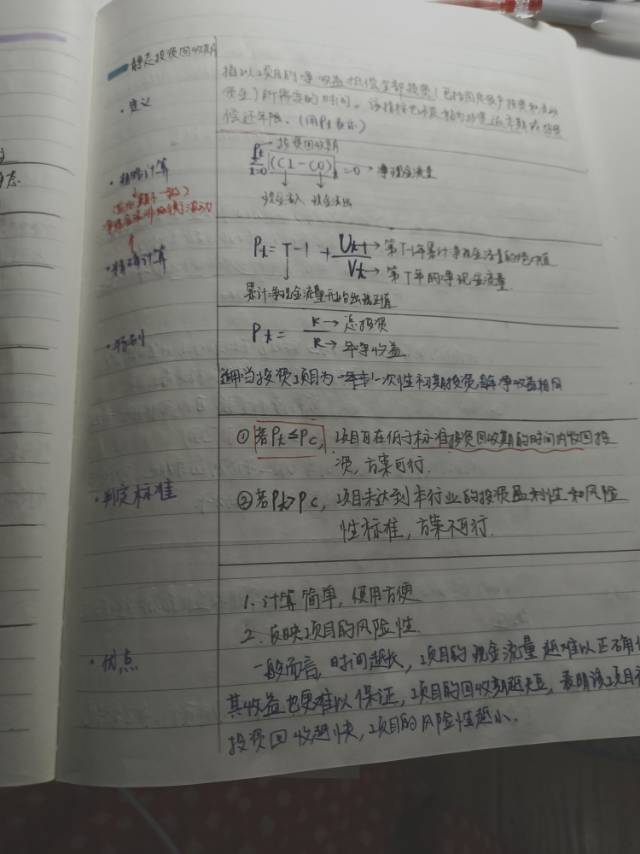 静态投资回收期
·定义
指以项目的净收益抵偿全部投资(包括固定资产投资和流动
资金)所需要的时间。
偿还年限。(用Pt表示)
·粗略计算
Pt→投资回收期
Σ(CI-CO)t=0→净现金流量
t=0
现金流入 现金流出
·精确计算
Pt=T-1+
Ut-1→第T-1年累计净现金流量的绝对值
Vt→第T年的净现金流量
累计净现金流量开始出现正值
·特别
Pt=
K→总投资
R→年净收益
适用当投资项目为一年末一次性初期投资,每年净收益相同
·判定标准
①若Pt≤Pc,项目可在低于标准投资回收期的时间内收回投
资,方案可行.
②若Pt>Pc,项目未达到本行业的投资盈利性和风险
性标准,方案不可行.
·优点
1.计算简单,使用方便
2.反映项目的风险性
一般而言,时间越长,项目的现金流量越难以正确
其收益也更难以保证,项目的回收期越短,表明该项目
投资回收越快,项目的风险性越小.